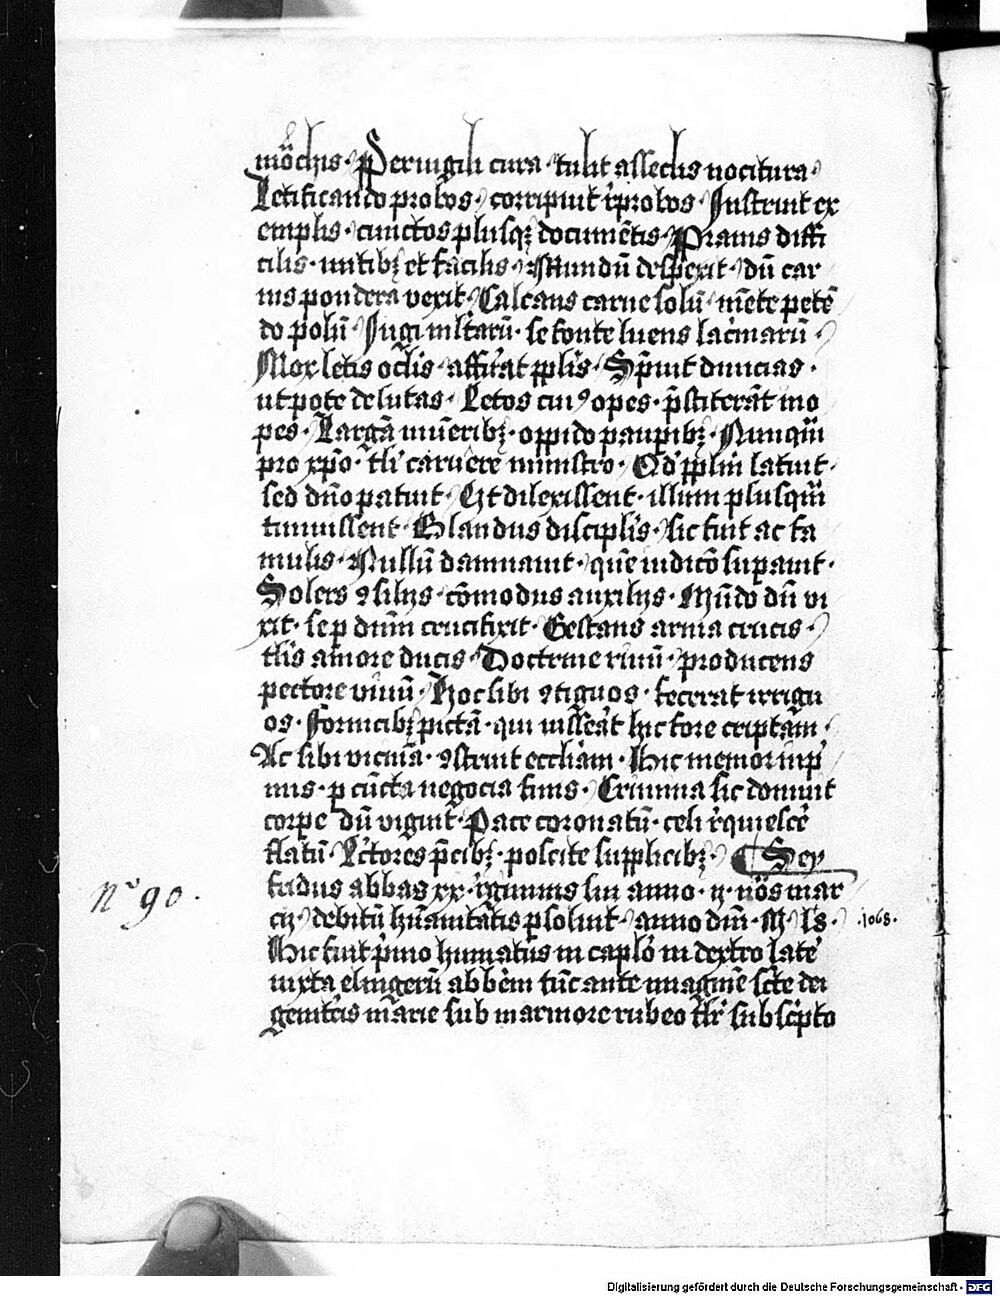 mōchis · Peruigili cura · tulit asseclis nocitura ·
Letificando probos · corripiut īprobos · Instruit ex
emplis · cunctos plusqꝫ documētis · Prauis diffi
cilis · mitibꝫ et facilis · Mundū despexit · dū car
nis pondera vexit · Calcans carne solū · mēte petē
do polū · Iugi mltarū · se fonte luens lacrimarū ·
Mox letis oclis · affirat pplis · Spuit diuicias ·
ut pote de lutas · Letos cuiꝰ opes · p̄stiterāt ino
pes · Largā mūeribꝫ · oppido paupibꝫ · Nunqm̄
pro xpo · tli caruere ministro · Qd' pplm latuit ·
sed dn̄o patuit · Ut dilexissent · illum plusqm̄
timuissent · Blandus disciplis · sic fuit ac fa
mulis · Nullū damnauit · quē iudicō supauit ·
Solers ꝯsiliis · cōmodus auxiliis · Mūdo dū vi
xit · sep dnm crucifixit · Gestans arma crucis ·
tlis amore ducis · Doctrine riuū · producens
pectore viuū · Hoc sibi ꝯtiguos · fecerat irrigu
os · Fornicibꝫ pictā · qui uisseāt hic fore criptam ·
Ac sibi vicinā · ꝯstruit eccliam · Hic memor inp'
mis · p cūcta negocia finis · Crimina sic domuit
corpe dū viguit · Pace coronatū · celi r̄quiescē
flatū · Lctores p̄cibꝫ · poscite supplicibꝫ · Sey
fridus abbas xx · rgiminis sui anno · ij · nōs mar
cij · debitū hūanitatis psoluit · anno dni · M · ls · .1068.
Nº 90.
Hic fuit p̄mo humatus in caplo in dextro late'
iuxta elingerū abbem tūc ante imaginē scte dei
genitcis marie sub marmore rubeo tlr subscpto
Digitalisierung gefördert durch die Deutsche Forschungsgemeinschaft · DFG